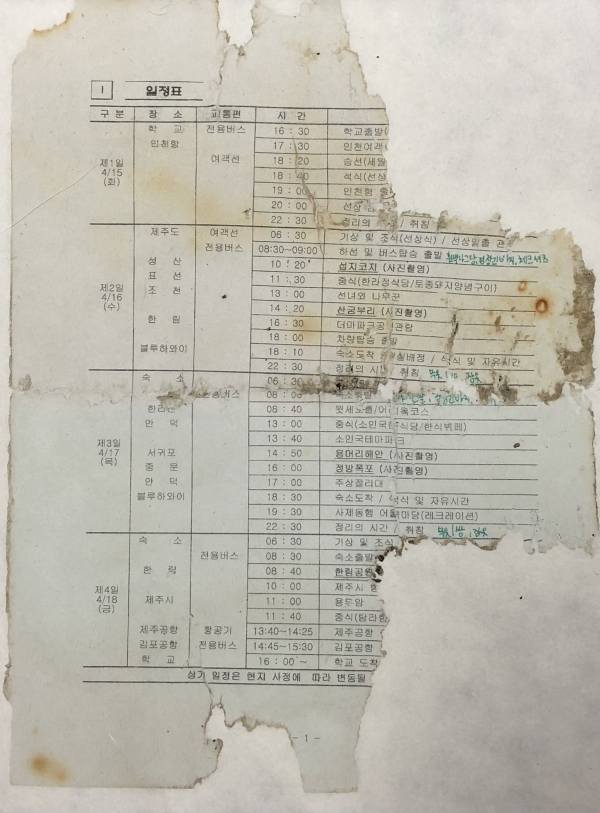 1 일정표
구 분 장 소 교통편 시 간
학 교 전용버스 16 : 30 학교출발
인천항 17 : 30 인천여객
제1일 4/15 (화)
여객선 18 : 20 승선(세월
18 : 40 석식(선상
19 : 00 인천항 출
20 : 00 선상
22 : 30 정리의 / 취침
제주도 여객선 06 : 30 기상 및 조식(선상식) / 선상일출 관
전용버스 08:30~09:00 하선 및 버스탑승 출발
성 산 10 : 20 섭지코지 (사진촬영)
표 선 11 : 30 중식(한라정식당/토종돼지양념구이)
제2일 4/16 (수)
조 천 13 : 00 선녀와 나무꾼
14 : 20 산굼부리 (사진촬영)
한 림 16 : 30 더마파크공 관람
18 : 00 차량탑승 출발
블루하와이 18 : 10 숙소도착 / 실배정 / 석식 및 자유시간
22 : 30 정리의 시간 / 취침
숙 소 06 : 30
전용버스 08 : 숙소출발
08 : 40 윗세오름/어리목코스
안 덕 13 : 00 중식(소인국 식당/한식뷔페)
제3일 4/17 (목)
13 : 40 소인국테마파크
서귀포 14 : 50 용머리해안 (사진촬영)
중 문 16 : 00 정방폭포 (사진촬영)
안 덕 17 : 00 주상절리대
블루하와이 18 : 30 숙소도착 / 석식 및 자유시간
19 : 30 사제동행 어울마당(레크레이션)
22 : 30 정리의 시간 / 취침
숙 소 06 : 30 기상 및 조식
전용버스 08 : 30 숙소출발
한 림 08 : 40 한림공원
제4일 4/18 (금)
10 : 00 제주시
제주시 11 : 00 용두암
11 : 40 중식(탐라
제주공항 항공기 13:40~14:25 제주공항
김포공항 전용버스 14:45~15:30 김포공항
학 교 16 : 00 ~ 학교 도착
상기 일정은 현지 사정에 따라 변동될
- 1 -